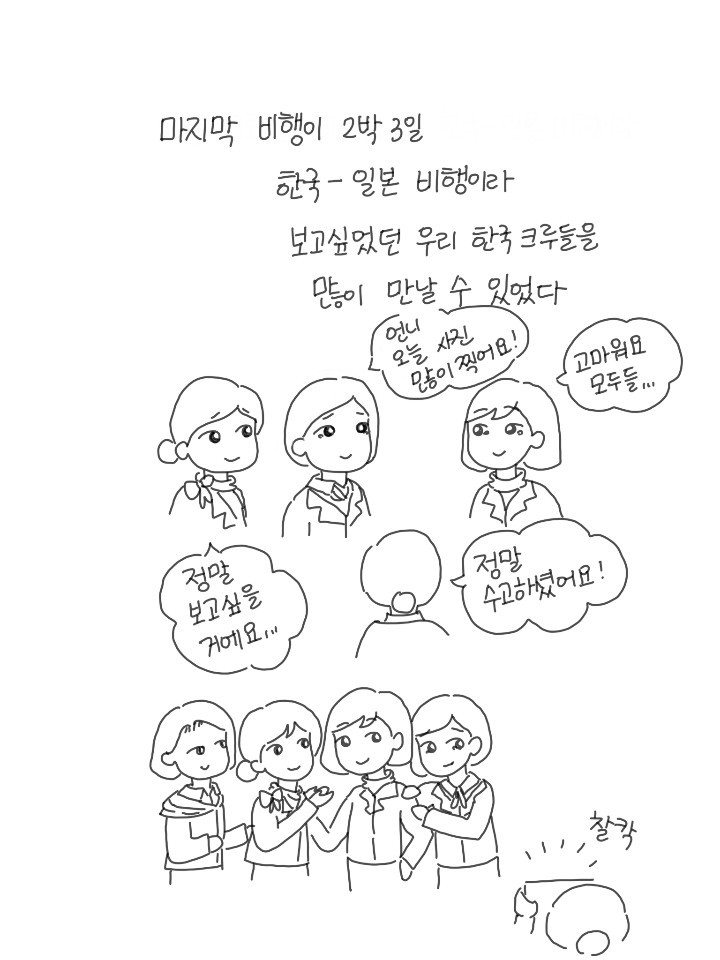 마지막 비행이 2박 3일
한국 - 일본 비행이라
보고싶었던 우리 한국 크루들을
많이 만날 수 있었다
언니
오늘 사진
많이 찍어요!
고마워요
모두들...
정말
보고싶을
거에요...
정말
수고하셨어요!
찰칵